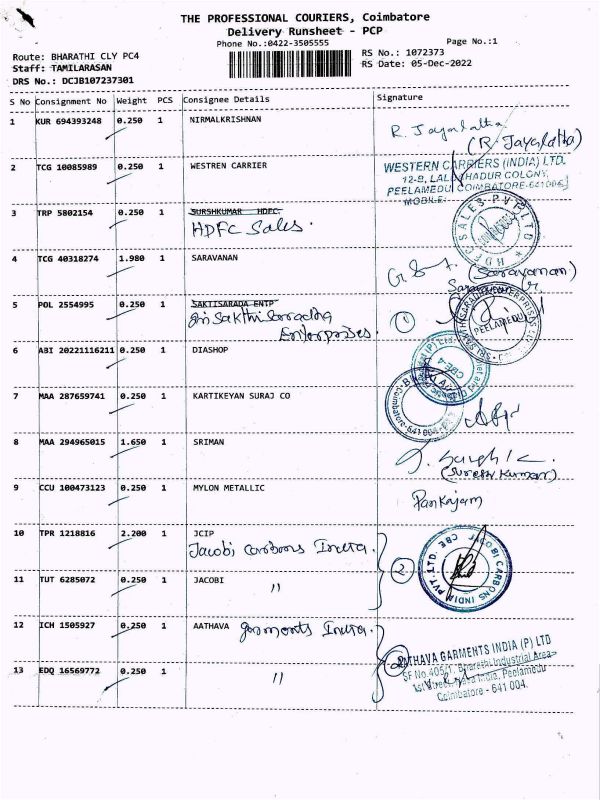 THE PROFESSIONAL COURIERS, Coimbatore
Delivery Runsheet - PCP
Phone No.:0422-3505555
Page No.:1
Route: BHARATHI CLY PC4
RS No.: 1072373
Staff: TAMILARASAN
RS Date: 05-Dec-2022
DRS No.: DCJB107237301
S No Consignment No Weight PCS Consignee Details Signature
1 KUR 694393248 0.250 1 NIRMALKRISHNAN
R. Jayalatha
(R Jayalatha)
2 TCG 10085989 0.250 1 WESTREN CARRIER
WESTERN CARRIERS (INDIA) LTD.
12-B, LAL BAHADUR COLONY,
PEELAMEDU COIMBATORE-641006
MOBILE:
3 TRP 5802154 0.250 1 SURSHKUMAR HDFC
HDFC Sales.
HDFC SALES PVT LTD
4 TCG 40318274 1.980 1 SARAVANAN
(Saravanan)
5 POL 2554995 0.250 1 SAKTISARADA ENTP
Sri Sakthi Saradha
Enterprises.
1
PEELAMEDU
6 ABI 20221116211 0.250 1 DIASHOP
CBE-4
Coimbatore-641 004
7 MAA 287659741 0.250 1 KARTIKEYAN SURAJ CO
8 MAA 294965015 1.650 1 SRIMAN
(Suresh Kumar)
9 CCU 100473123 0.250 1 MYLON METALLIC
Pankajam
10 TPR 1218816 2.200 1 JCIP
Jacobi Carbons India.
2
JACOBI CARBONS INDIA PVT. LTD. CBE
11 TUT 6285072 0.250 1 JACOBI
"
12 ICH 1505927 0.250 1 AATHAVA garments India.
2
AATHAVA GARMENTS INDIA (P) LTD
SF No.405/1, Bharathi Industrial Area
Peelamedu
Coimbatore - 641 004.
13 EDQ 16569772 0.250 1
"